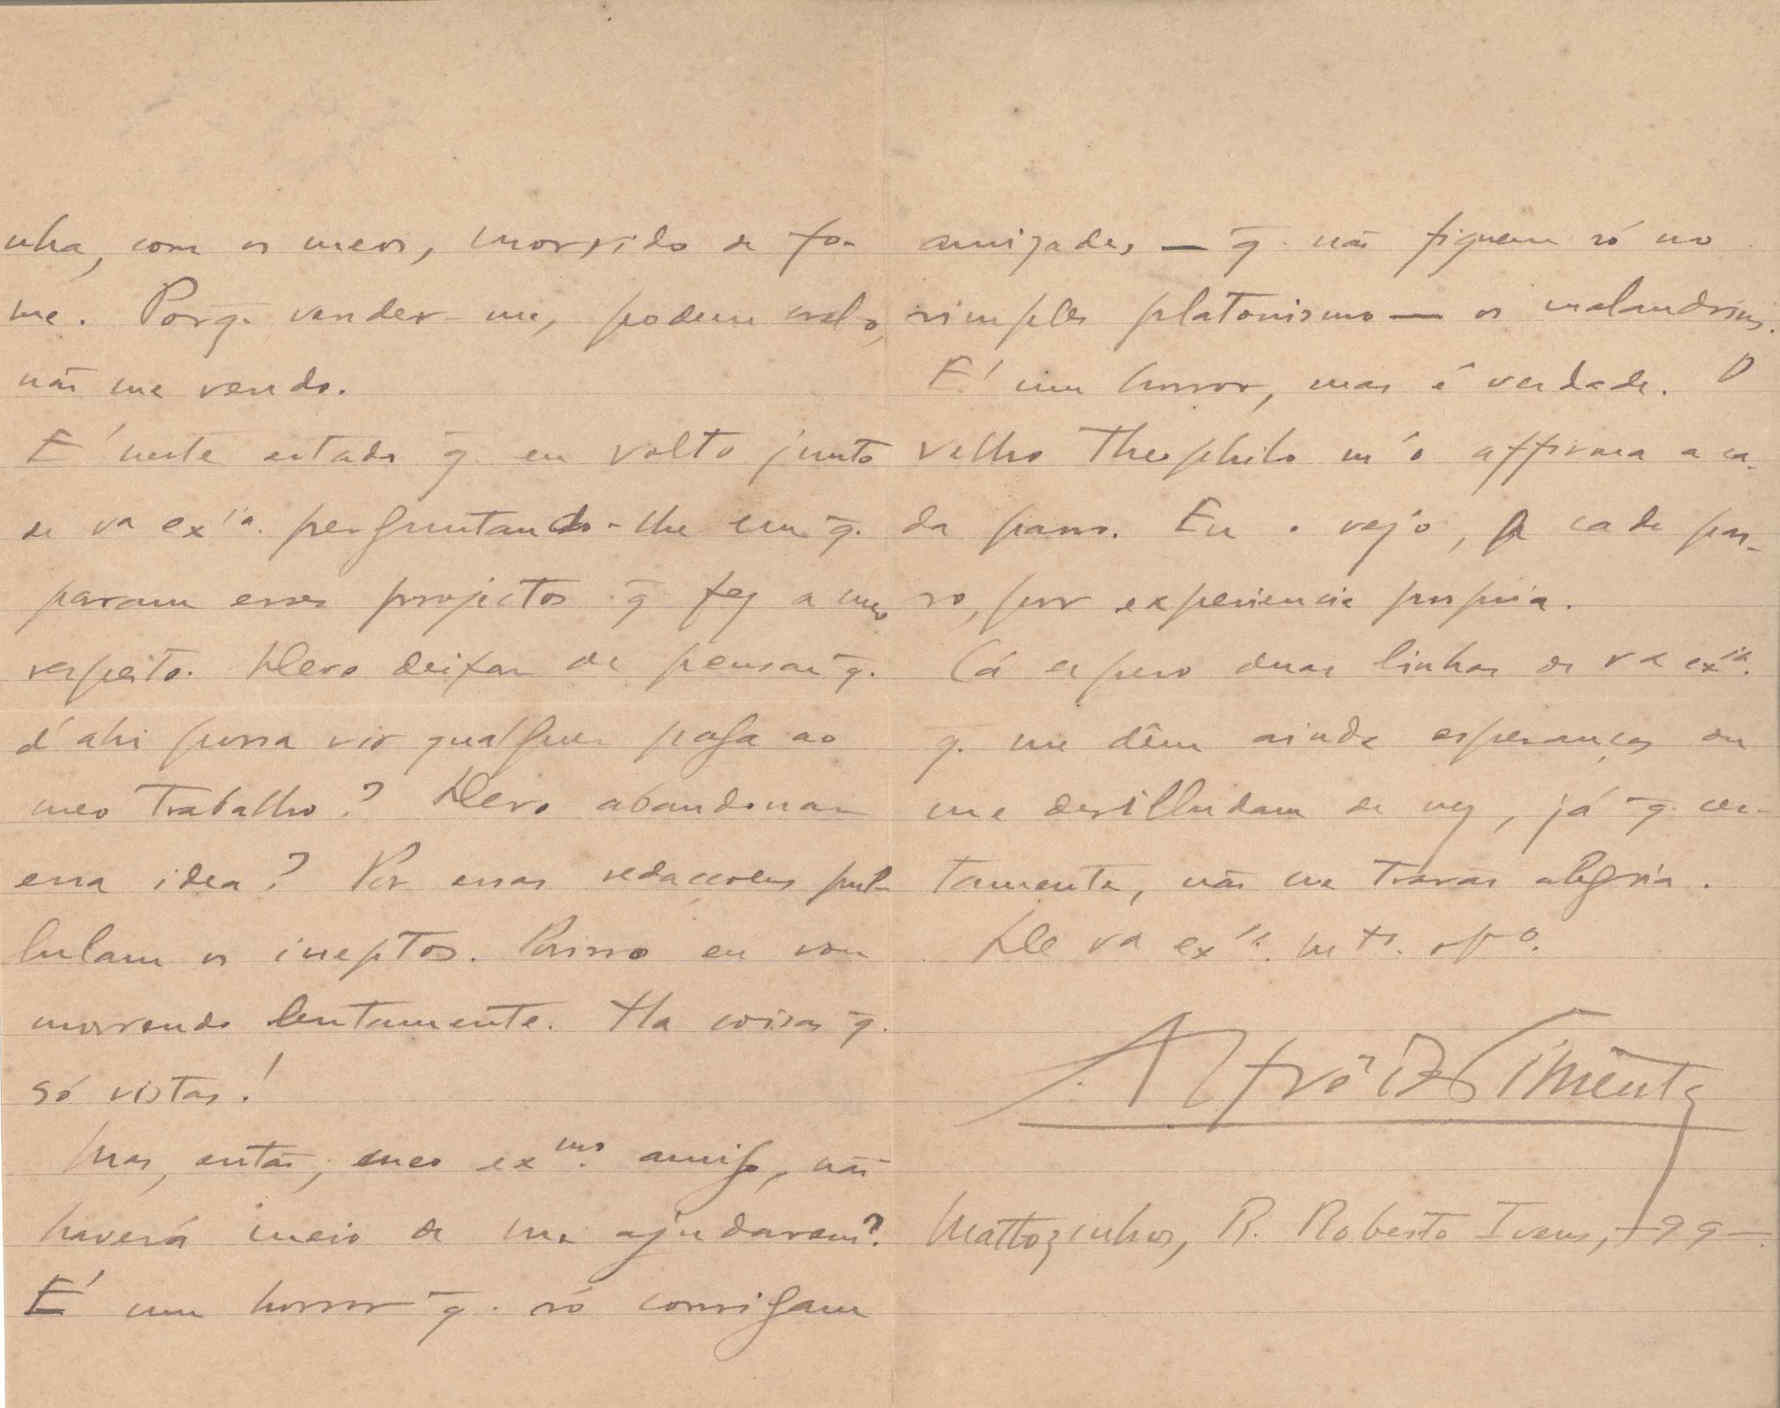 nha, com os meos, morrido de fo-
me. Porq. vender-me, podem crel-o,
não me vendo.
E' neste estado q̄. eu volto junto
de va exia. perguntando-lhe em q̄.
param esses projectos q̄ fez a meo
respeito. Devo deixar de pensar q̄.
d'ahi possa vir qualquer paga ao
meo trabalho? Devo abandonar
essa idea? Por essas redacções pul-
lulam os ineptos. Porisso eu vou
morrendo lentamente. Ha coisas q̄.
só vistas!
Mas, então, meo exmo. amigo, não
haverá meio de me ajudarem?
É um horror q̄. só consigam
amizades, — q̄. não fiquem só no
simples platonismo — os malandrins.
E' um horror, mas é verdade. O
velho Theophilo m'o affirma a ca-
da passo. Eu o vejo, a cada pas-
so, por experiencia propria.
Cá espero duas linhas de va exia.
q. me dêm ainda esperanças ou
me desilludam de vez, já q̄. cer-
tamente, não me trarão alegria.
De va exia. mto. obo.
Alfrêdo Pimenta
Mattozinhos, R. Roberto Ivens, -99-.